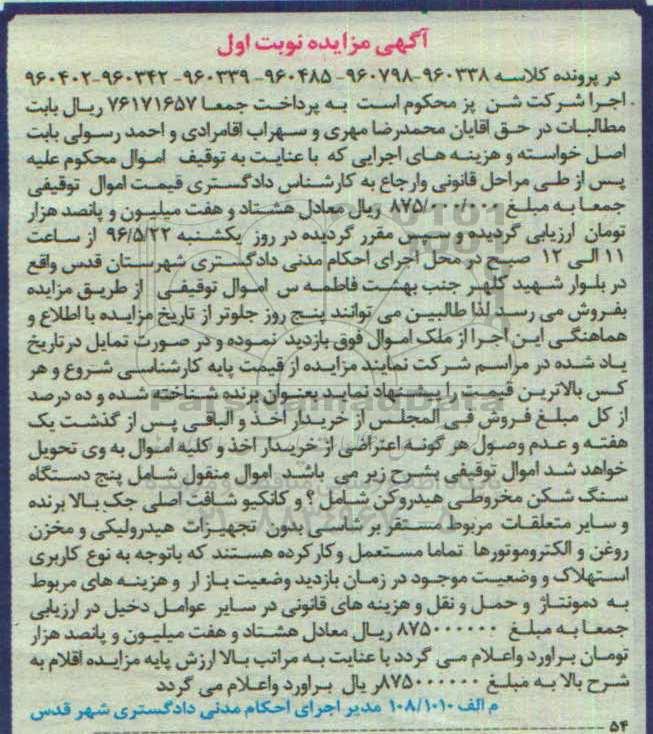 آگهی مزایده نوبت اول
در پرونده کلاسه ۹۶۰۳۳۸-۹۶۰۷۹۸-۹۶۰۴۸۵-۹۶۰۳۳۹-۹۶۰۳۴۲-۹۶۰۴۰۲
اجرا شرکت شن پز محکوم است به پرداخت جمعا ۷۶۱۷۱۶۵۷ ریال بابت
مطالبات در حق اقایان محمدرضا مهری و سهراب اقامرادی و احمد رسولی بابت
اصل خواسته و هزینه های اجرایی که با عنایت به توقیف اموال محکوم علیه
پس از طی مراحل قانونی وارجاع به کارشناس دادگستری قیمت اموال توقیفی
جمعا به مبلغ ۸۷۵/۰۰۰/۰۰۰ ریال معادل هشتاد و هفت میلیون و پانصد هزار
تومان ارزیابی گردیده و سپس مقرر گردیده در روز یکشنبه ۹۶/۵/۲۲ از ساعت
۱۱ الی ۱۲ صبح در محل اجرای احکام مدنی دادگستری شهرستان قدس واقع
در بلوار شهید کلهر جنب بهشت فاطمه س اموال توقیفی از طریق مزایده
بفروش می رسد لذا طالبین می توانند پنج روز جلوتر از تاریخ مزایده با اطلاع و
هماهنگی این اجرا از ملک اموال فوق بازدید نموده و در صورت تمایل در تاریخ
یاد شده در مراسم شرکت نمایند مزایده از قیمت پایه کارشناسی شروع و هر
کس بالاترین قیمت را پیشنهاد نماید بعنوان برنده شناخته شده و ده درصد
از کل مبلغ فروش فی المجلس از خریدار اخذ و الباقی پس از گذشت یک
هفته و عدم وصول هر گونه اعتراضی از خریدار اخذ و کلیه اموال به وی تحویل
خواهد شد اموال توقیفی بشرح زیر می باشد اموال منقول شامل پنج دستگاه
سنگ شکن مخروطی هیدروکن شامل ؟ و کانکیو شافت اصلی جک بالا برنده
و سایر متعلقات مربوط مستقر بر شاسی بدون تجهیزات هیدرولیکی و مخزن
روغن و الکتروموتورها تماما مستعمل وکارکرده هستند که باتوجه به نوع کاربری
استهلاک و وضعیت موجود در زمان بازدید وضعیت بازار و هزینه های مربوط
به دمونتاژ و حمل و نقل و هزینه های قانونی در سایر عوامل دخیل در ارزیابی
جمعا به مبلغ ۸۷۵۰۰۰۰۰۰ ریال معادل هشتاد و هفت میلیون و پانصد هزار
تومان براورد واعلام می گردد با عنایت به مراتب بالا ارزش پایه مزایده اقلام به
شرح بالا به مبلغ ۸۷۵۰۰۰۰۰۰ر یال براورد واعلام می گردد
م الف ۱۰۸/۱۰۱۰ مدیر اجرای احکام مدنی دادگستری شهر قدس
۵۴